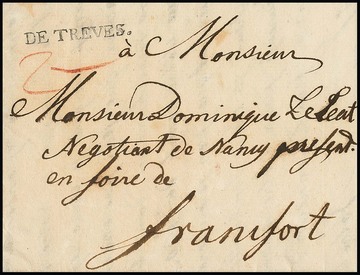 DE TREVES.
à Monsieur
Monsieur Dominique Le Leat
Negotiant de Nancy present.
en foire de
francfort